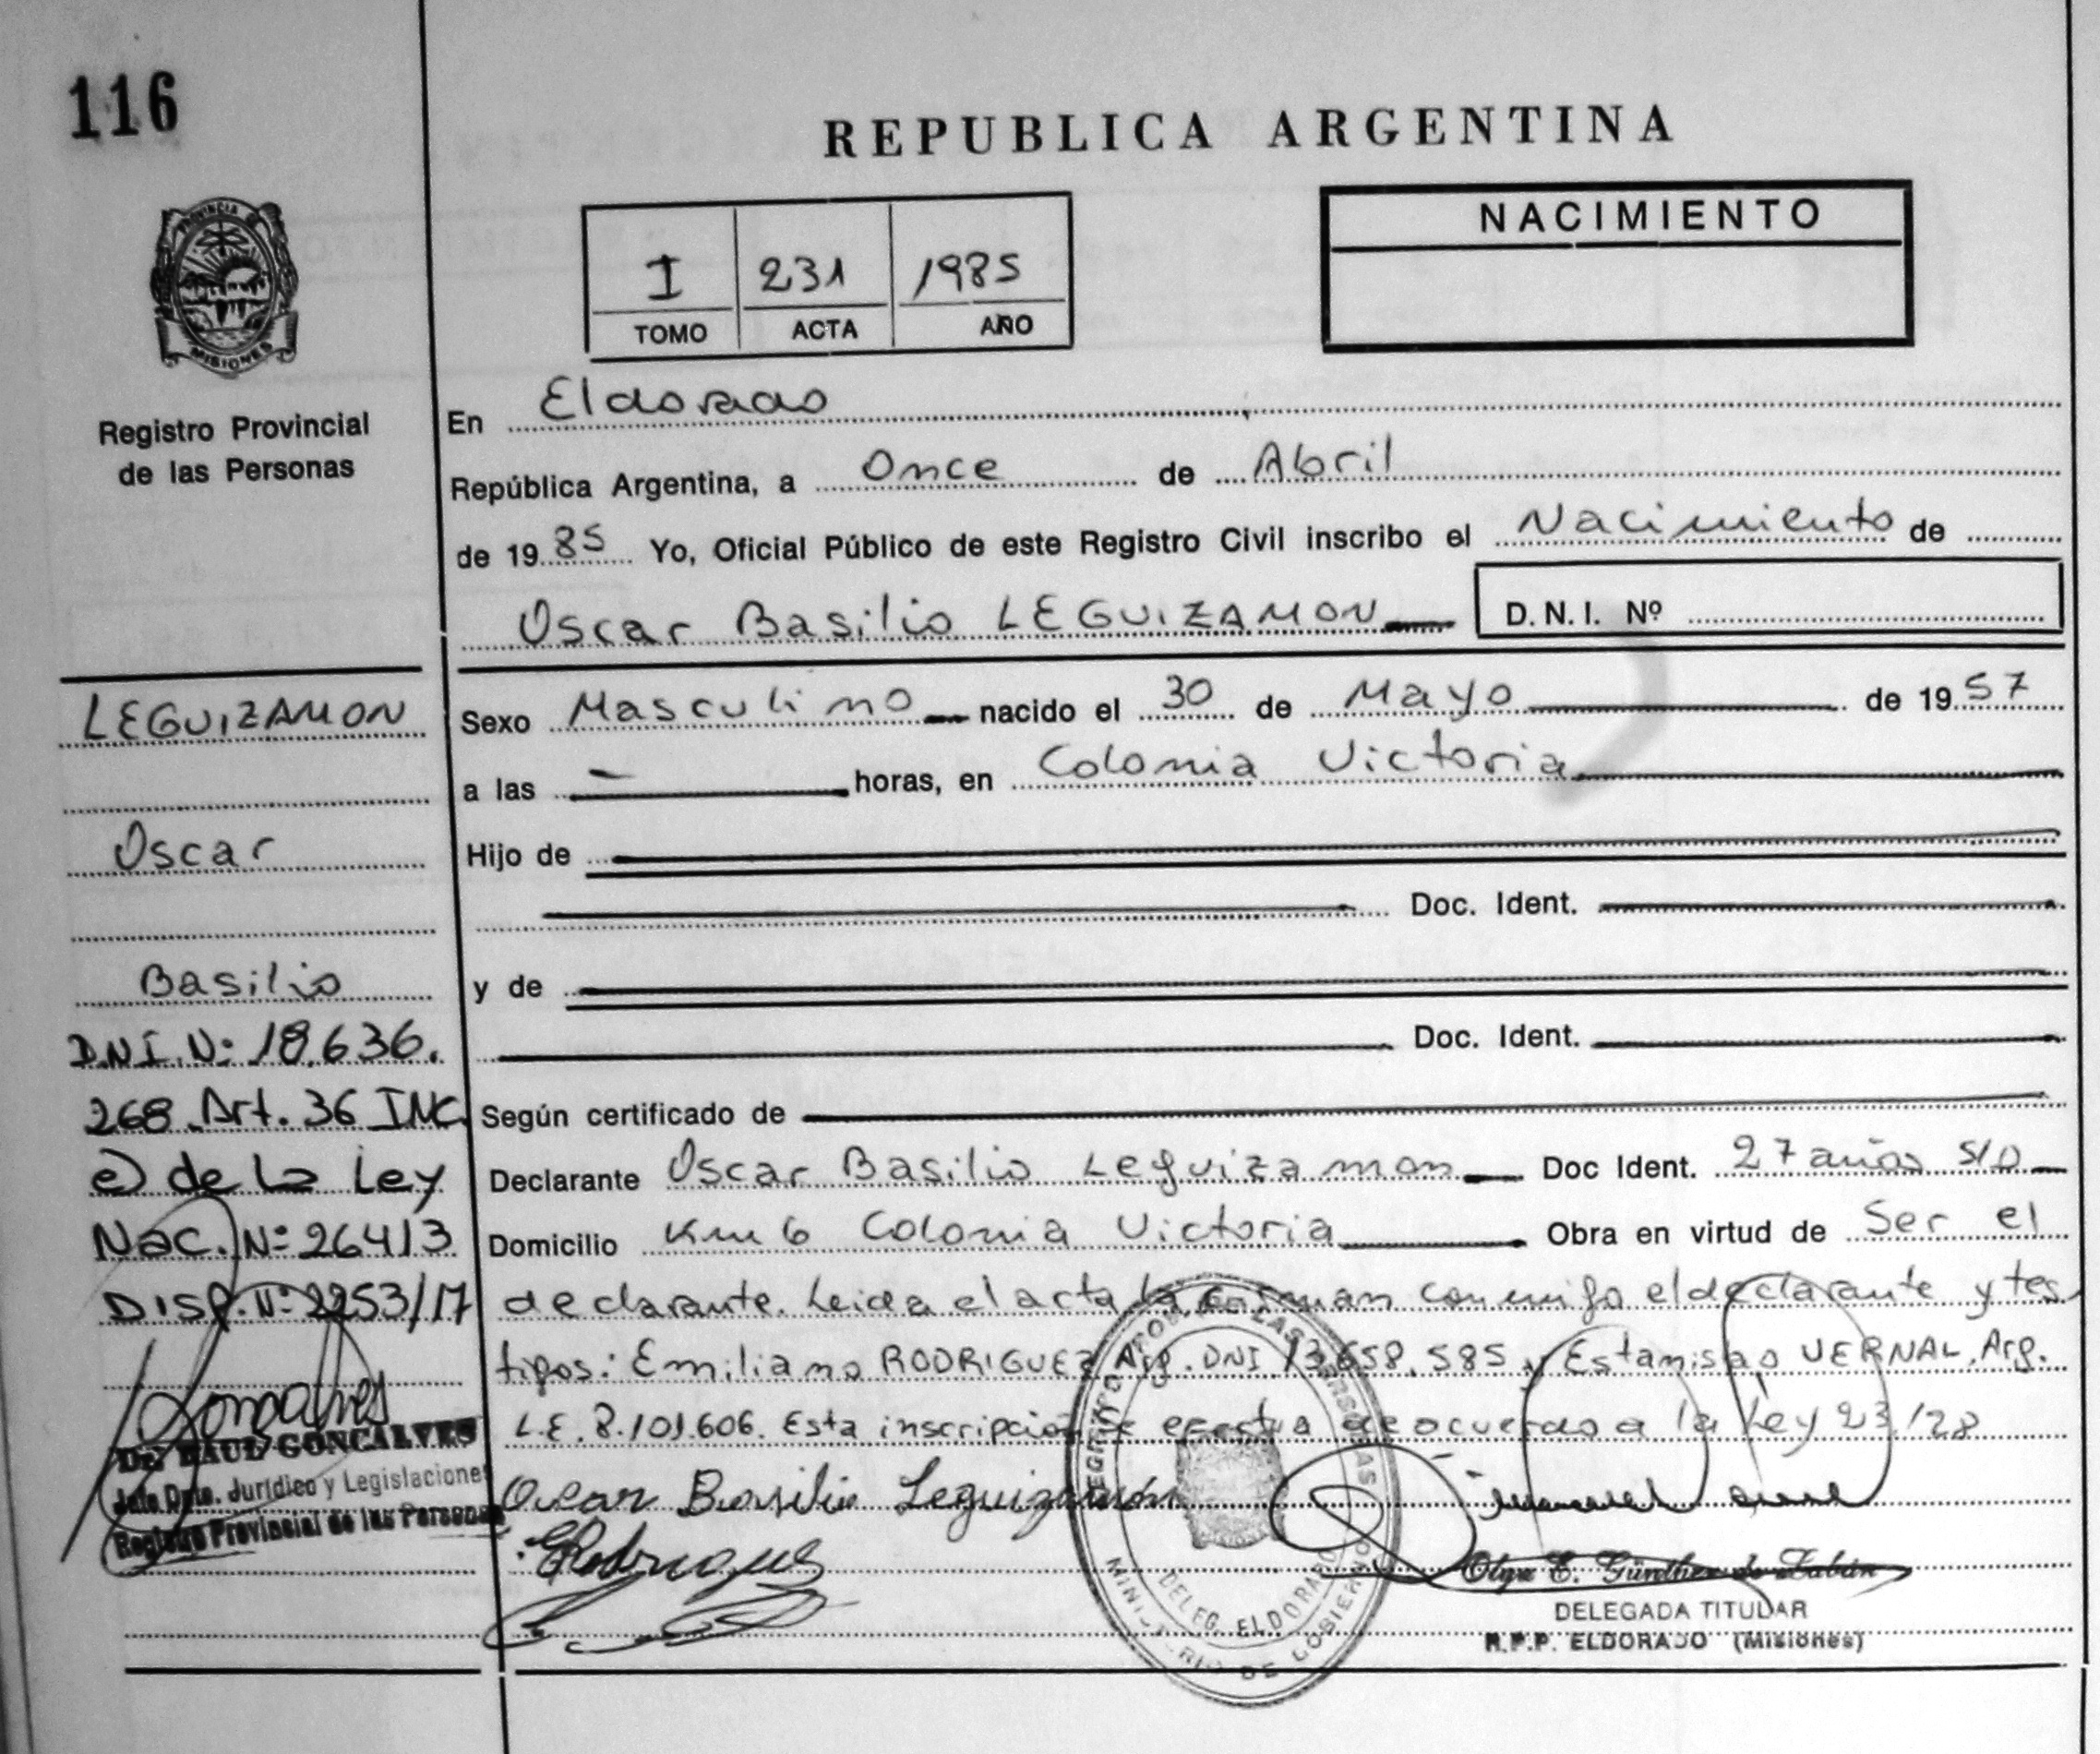 116
REPUBLICA ARGENTINA
PROVINCIA DE
MISIONES
Registro Provincial
de las Personas
I 231 1985
TOMO ACTA AÑO
NACIMIENTO
En Eldorado
República Argentina, a Once de Abril
de 19 85 Yo, Oficial Público de este Registro Civil inscribo el Nacimiento de
Oscar Basilio LEGUIZAMON D.N.I. Nº
LEGUIZAMON
Oscar
Basilio
D.N.I. Nº 18.636.
268. Art. 36 INC
e) de la Ley
Nac. Nº 26413
DISP. Nº 2253/17
Dr. RAUL GONCALVES
Jefe Dpto. Jurídico y Legislaciones
Registro Provincial de las Personas
Sexo Masculino nacido el 30 de Mayo de 19 57
a las horas, en Colonia Victoria
Hijo de
Doc. Ident.
y de
Doc. Ident.
Según certificado de
Declarante Oscar Basilio Leguizamon Doc Ident. 27 años S/D
Domicilio Km 6 Colonia Victoria Obra en virtud de Ser el
declarante. Leida el acta la firman conmigo el declarante y tes
tigos: Emiliano RODRIGUEZ Arg. DNI 13.658.585 y Estanislao VERNAL. Arg.
L.E. 8.101.606. Esta inscripcion se efectua de acuerdo a la Ley 23.128
Oscar Basilio Leguizamón
ERodriguez
REGISTRO DE LAS PERSONAS
DELEG. ELDORADO
MINISTERIO DE GOBIERNO
Olga E. Günther de Fabián
DELEGADA TITULAR
R.P.P. ELDORADO (Misiones)